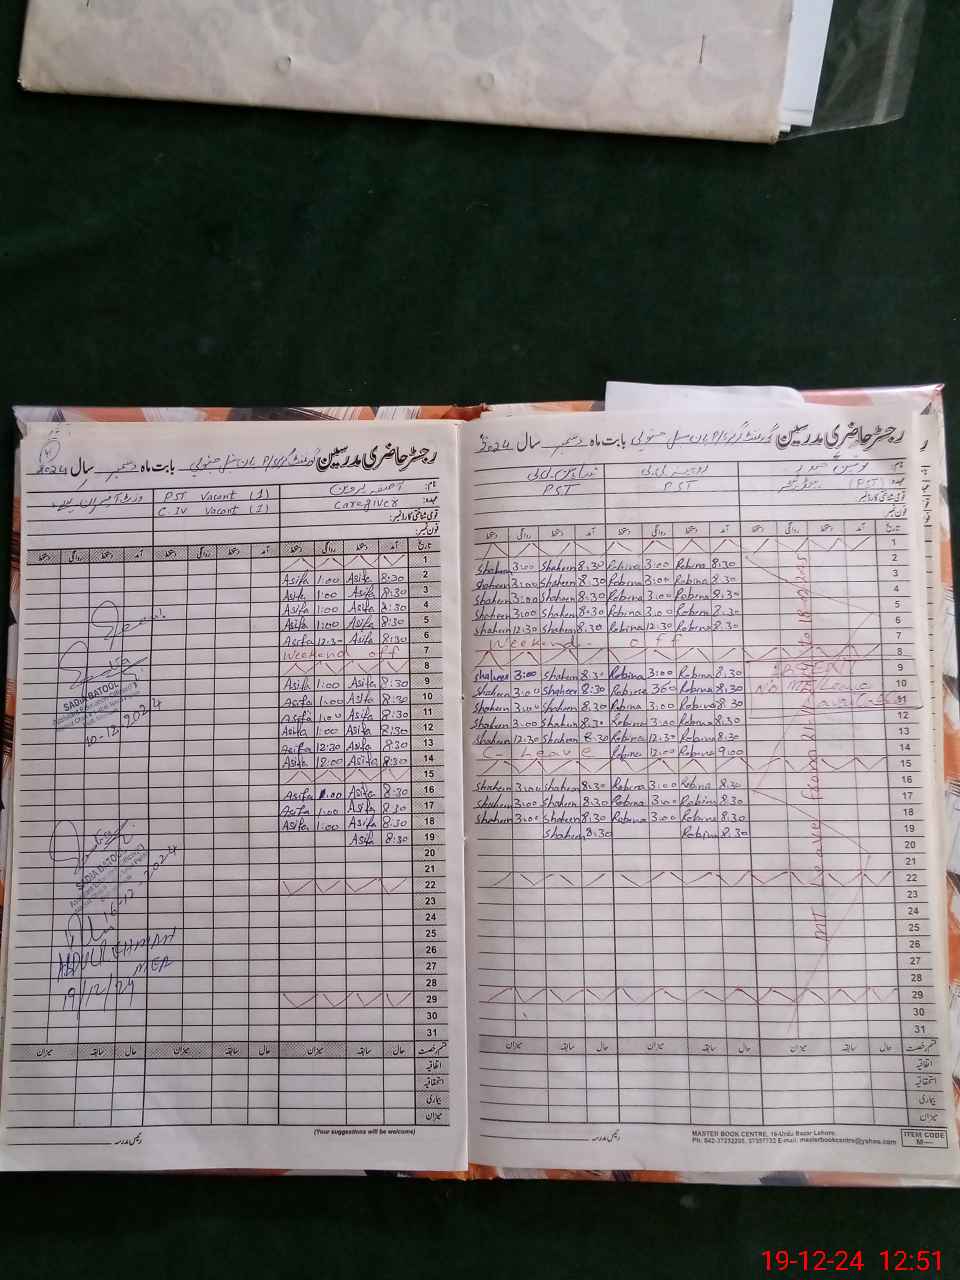 رجسٹر حاضری مدرسین بابت ماہ دسمبر سال 2024
نام:
آصفہ پروین
عہدہ:
Caregiver
PST Vacant (1)
C.IV Vacant (1)
قومی شناختی کارڈ نمبر:
فون نمبر:
تاریخ آمد دستخط روانگی دستخط آمد دستخط روانگی دستخط آمد دستخط روانگی دستخط
1
Asifa 1:00 Asifa 8:30 2
Asifa 1:00 Asifa 8:30 3
Asifa 1:00 Asifa 8:30 4
Asifa 1:00 Asifa 8:30 5
Asifa 12:30 Asifa 8:30 6
Weekend off 7
8
Asifa 1:00 Asifa 8:30 9
Asifa 1:00 Asifa 8:30 10
Asifa 1:00 Asifa 8:30 11
Asifa 1:00 Asifa 8:30 12
Asifa 12:30 Asifa 8:30 13
Asifa 12:00 Asifa 8:30 14
15
Asifa 1:00 Asifa 8:30 16
Asifa 1:00 Asifa 8:30 17
Asifa 1:00 Asifa 8:30 18
Asifa 8:30 19
20
21
22
23
24
25
26
27
28
29
30
31
SADIA BATOOL
10-12-2024
SADIA BATOOL
16-12-2024
ABDUL REHMAN
MEA
19/12/24
قسم رخصت حال سابقہ میزان حال سابقہ میزان حال سابقہ میزان
اتفاقیہ
استحقاقیہ
بیماری
میزان
(Your suggestions will be welcome)
رئیس مدرسہ
رجسٹر حاضری مدرسین بابت ماہ دسمبر سال 2024
نام:
عہدہ:
(PST)
PST
PST
قومی شناختی کارڈ نمبر:
فون نمبر:
تاریخ آمد دستخط روانگی دستخط آمد دستخط روانگی دستخط آمد دستخط روانگی دستخط
1
Shaheen 3:00 Shaheen 8:30 Robina 3:00 Robina 8:30 2
Shaheen 3:00 Shaheen 8:30 Robina 3:00 Robina 8:30 3
Shaheen 3:00 Shaheen 8:30 Robina 3:00 Robina 8:30 4
Shaheen 3:00 Shaheen 8:30 Robina 3:00 Robina 8:30 5
Shaheen 12:30 Shaheen 8:30 Robina 12:30 Robina 8:30 6
Weekend. off 7
8
Shaheen 3:00 Shaheen 8:30 Robina 3:00 Robina 8:30 9
Shaheen 3:00 Shaheen 8:30 Robina 3:00 Robina 8:30 10
Shaheen 3:00 Shaheen 8:30 Robina 3:00 Robina 8:30 11
Shaheen 3:00 Shaheen 8:30 Robina 3:00 Robina 8:30 12
Shaheen 12:30 Shaheen 8:30 Robina 12:30 Robina 8:30 13
C- Leave Robina 12:00 Robina 9:00 14
15
Shaheen 3:00 Shaheen 8:30 Robina 3:00 Robina 8:30 16
Shaheen 3:00 Shaheen 8:30 Robina 3:00 Robina 8:30 17
Shaheen 3:00 Shaheen 8:30 Robina 3:00 Robina 8:30 18
Shaheen 8:30 Robina 8:30 19
20
21
22
23
24
25
26
27
28
29
30
31
Leave From
قسم رخصت حال سابقہ میزان حال سابقہ میزان حال سابقہ میزان
اتفاقیہ
استحقاقیہ
بیماری
میزان
رئیس مدرسہ
MASTER BOOK CENTRE, 19-Urdu Bazar Lahore.
Ph: 042-37232205, 37357732 E-mail: masterbookcentre@yahoo.com
ITEM CODE
M—
19-12-24 12:51